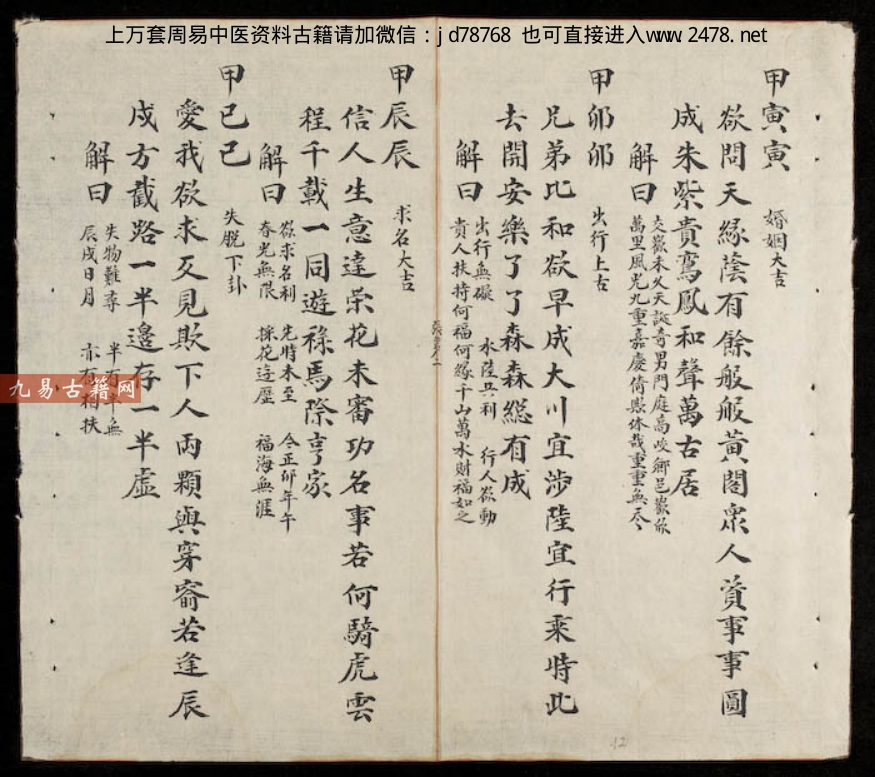 上万套周易中医资料古籍请加微信：jd78768 也可直接进入www.2478.net
甲寅寅 婚姻大吉
欲問天緣蔭有餘般般黃閣衆人資事事圓
成朱紫貴鸞鳳和聲萬古居
解曰
交歡未久天誕奇男門庭高峻鄉邑歡欣
萬里風光九重嘉慶倚熙休哉重重無尽
甲卯卯 出行上吉
兄弟比和欲早成大川宜涉陸宜行乘時此
去開安樂了了森森総有成
解曰
出行無礙 水陸共利 行人欲動
貴人扶持何福何緣千山萬水財福如之
甲辰辰 求名大吉
信人生意達荣花未審功名事若何騎虎雲
程千載一同遊祿馬際亨家
解曰
欲求名利 先時未至 今正卯年午
春光無限 採花逄歷 福海無涯
甲巳己 失脫下卦
愛我欲求反見欺下人両顆與穿窬若逢辰
戍方截路一半邊存一半虛
解曰
失物難尋 半有半無
辰戍日月 亦有相扶
九易古籍网
12